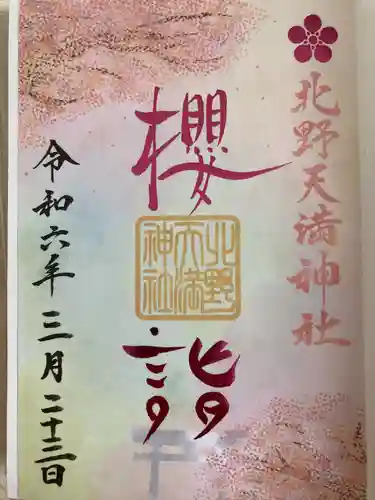 北野天満神社
櫻詣
北野
天満
神社
令和六年三月二十三日